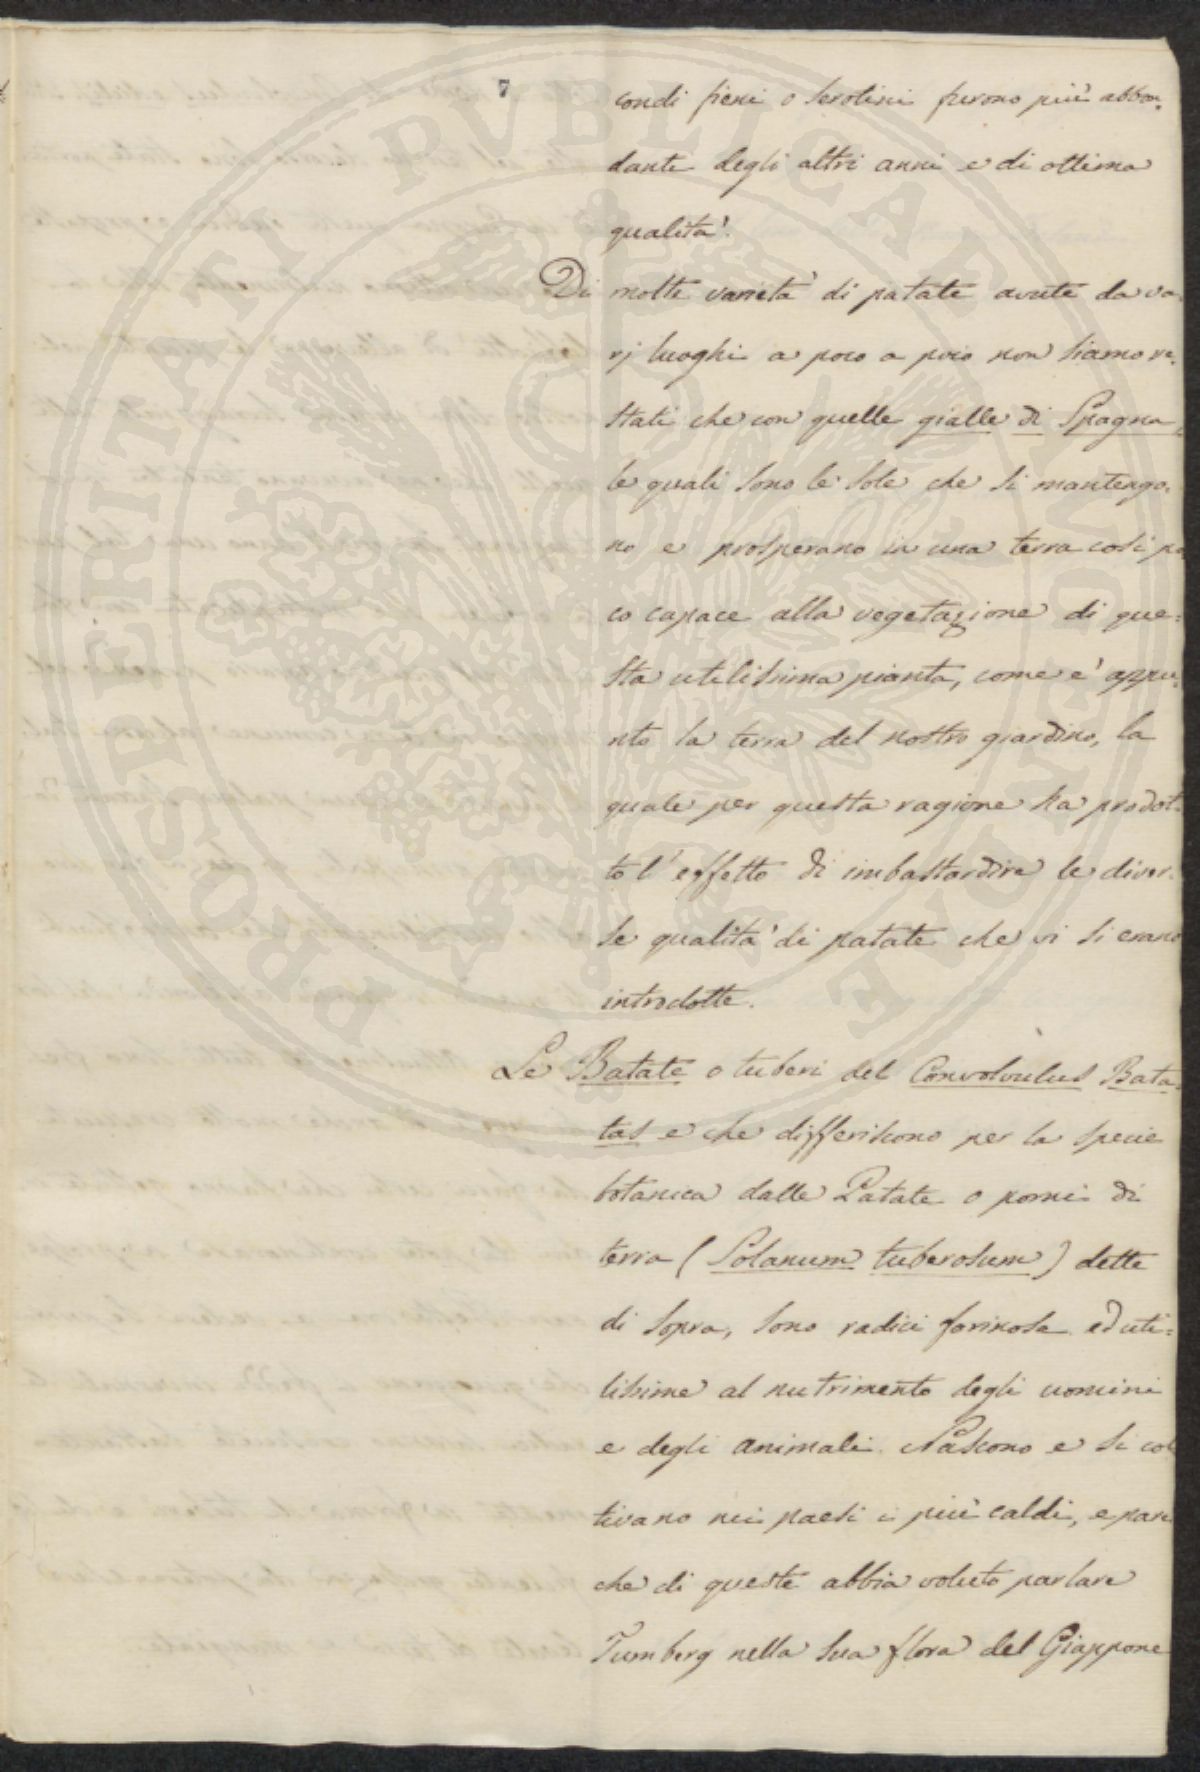 7
condi fieni o serotini furono più abbon=
dante degli altri anni e di ottima
qualità.
Di molte varietà di patate avute da va
rj luoghi a poco a poco non siamo re=
stati che con quelle gialle di Spagna,
le quali sono le sole che si mantengo=
no e prosperano in una terra così po
co capace alla vegetazione di que=
sta utilissima pianta, come è appu=
nto la terra del nostro giardino, la
quale per questa ragione ha prodot=
to l'effetto di imbastardire le diver=
se qualità di patate che vi si erano
introdotte.
Le Batate o tuberi del Convolvulus Bata=
tas e che differiscono per la specie
botanica dalle Patate o pomi di
terra (Solanum tuberosum) dette
di sopra, sono radici farinose ed uti=
lissime al nutrimento degli uomini
e degli animali. Nascono e si col
tivano nei paesi i più caldi, e pare
che di queste abbia voluto parlare
Tumberg nella sua flora del Giappone
PROSPERITATI PVBLICAE AVGENDAE